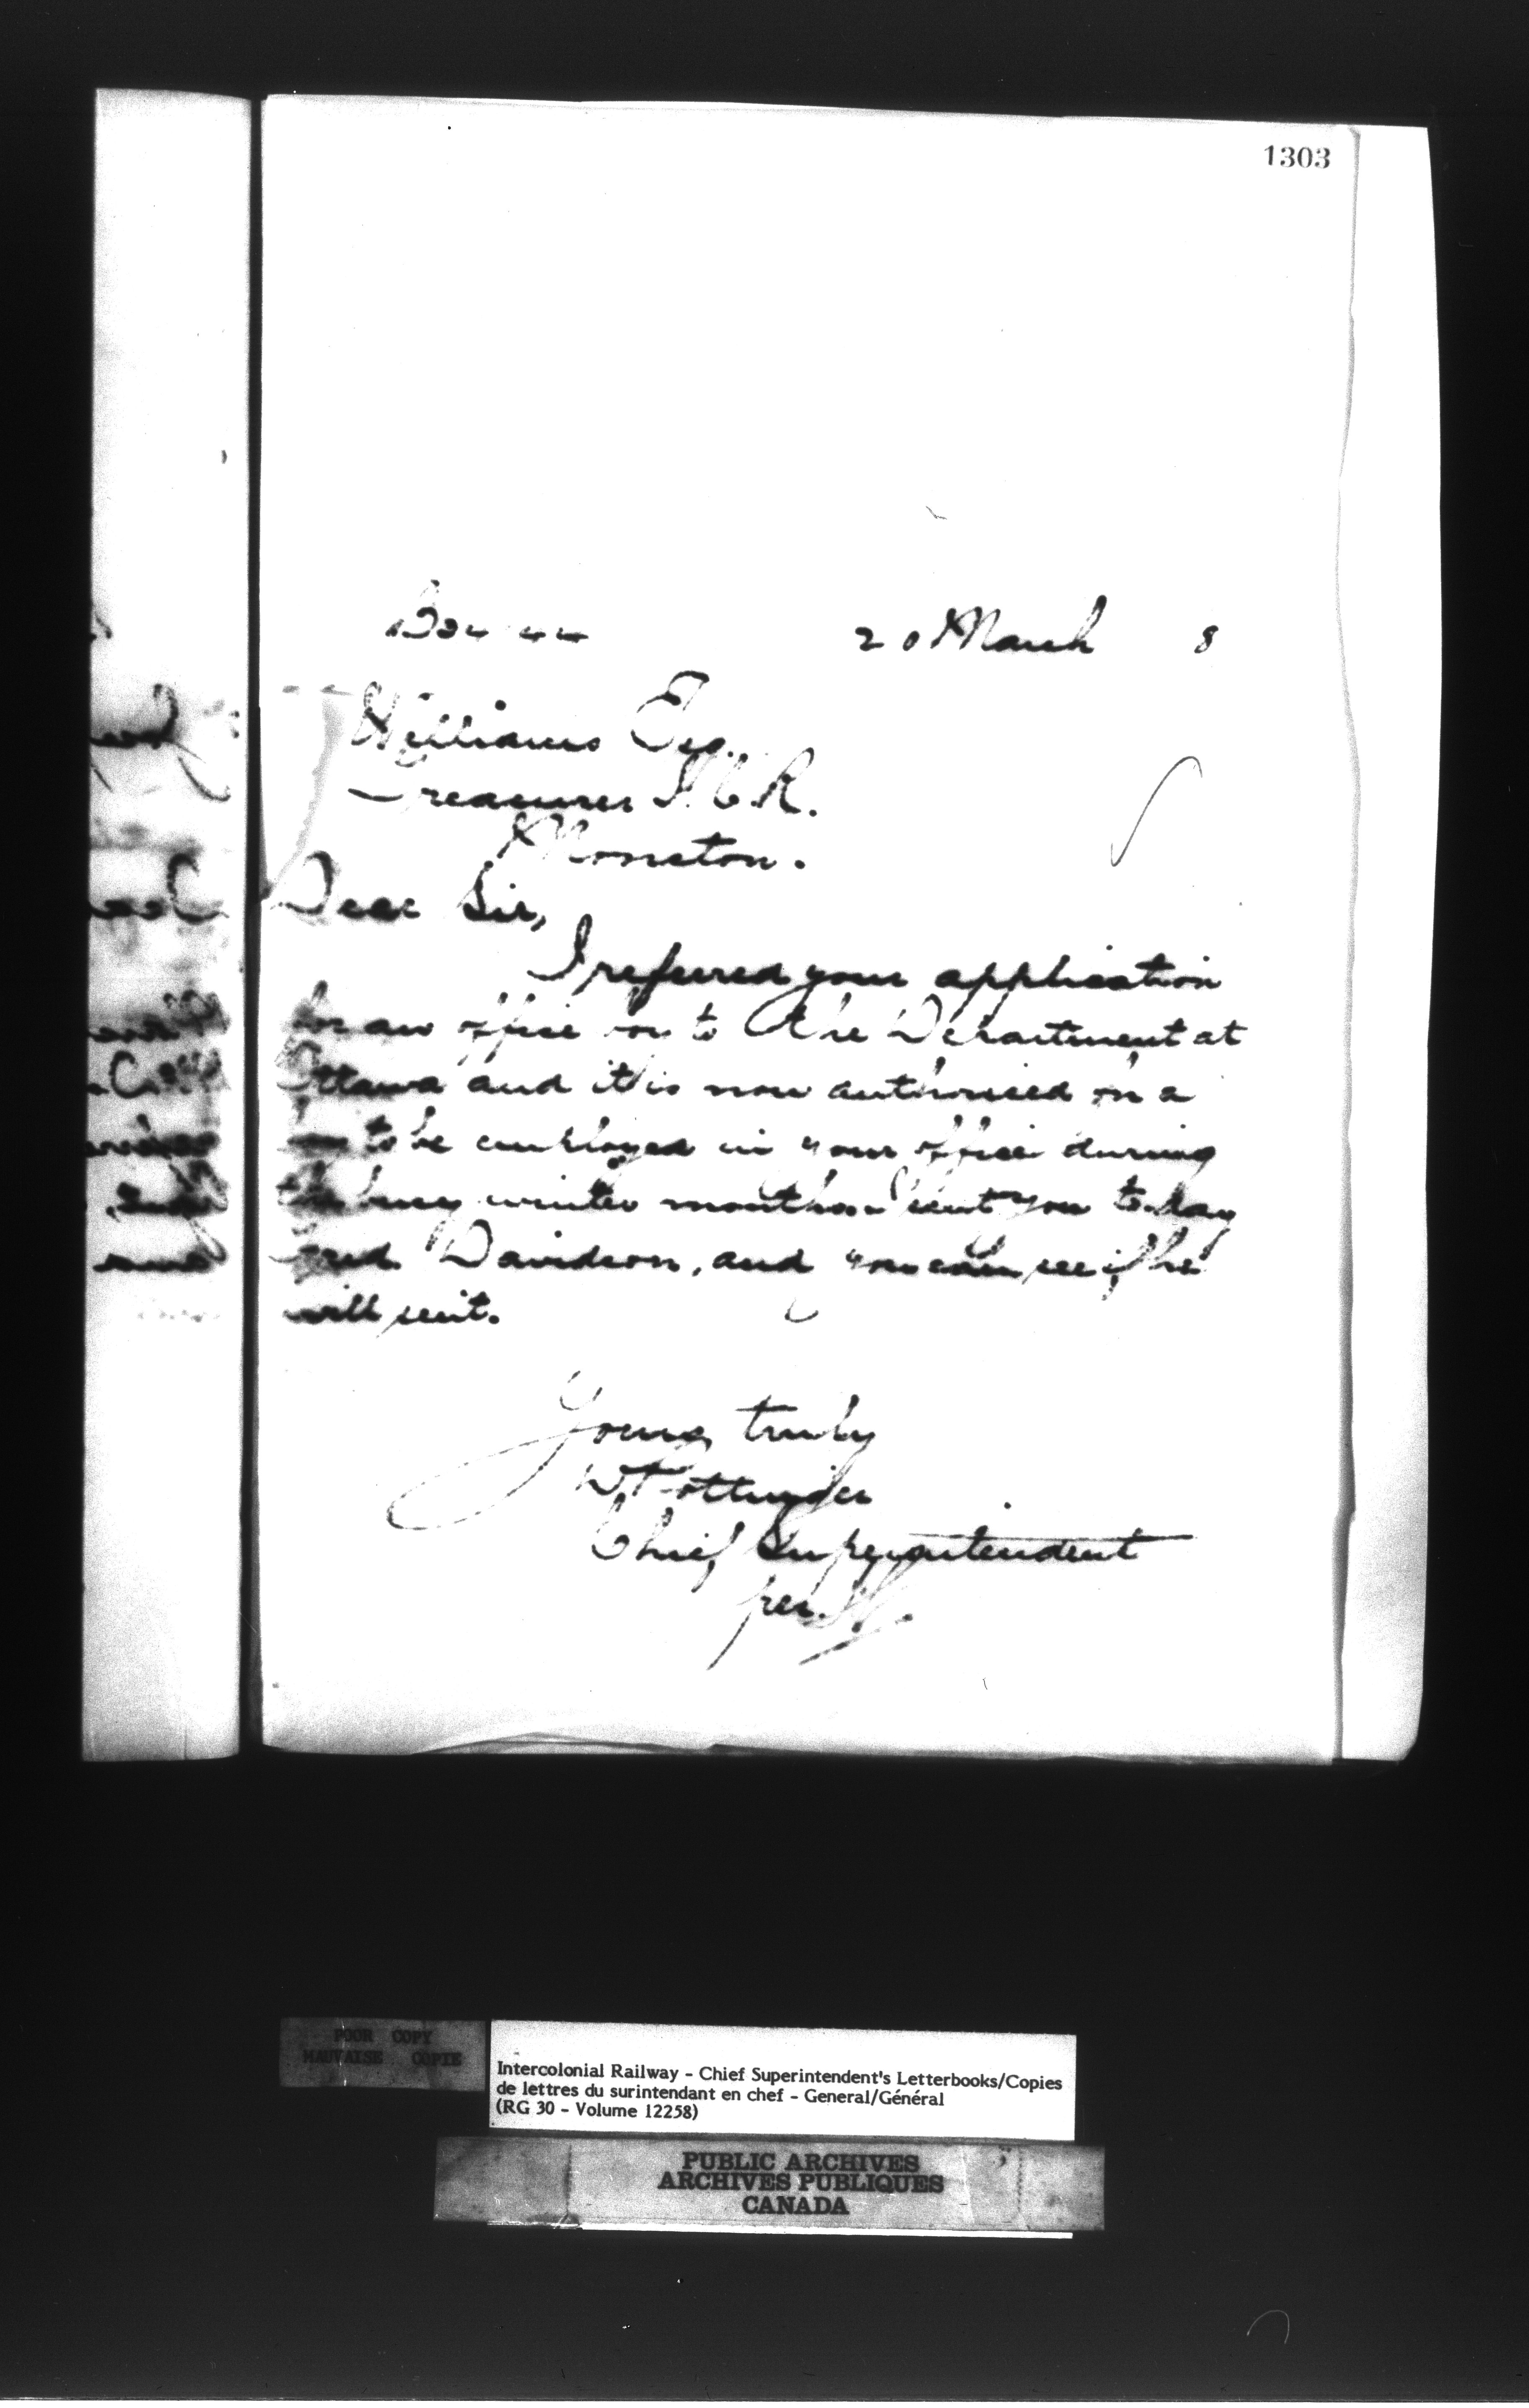 1303
20 March 8
Williams Esq.
Treasurer I.C.R.
Moncton.
Dear Sir,
I referred your application
for an office boy to the Department at
Ottawa and it is now authorised for a
boy to be employed in your office during
the busy winter months. I sent you to-day
Davidson, and you can see if he
will suit.
Yours truly
D Pottinger
Chief Superintendent
per
POOR COPY
MAUVAISE COPIE
Intercolonial Railway - Chief Superintendent's Letterbooks/Copies
de lettres du surintendant en chef - General/Général
(RG 30 - Volume 12258)
PUBLIC ARCHIVES
ARCHIVES PUBLIQUES
CANADA